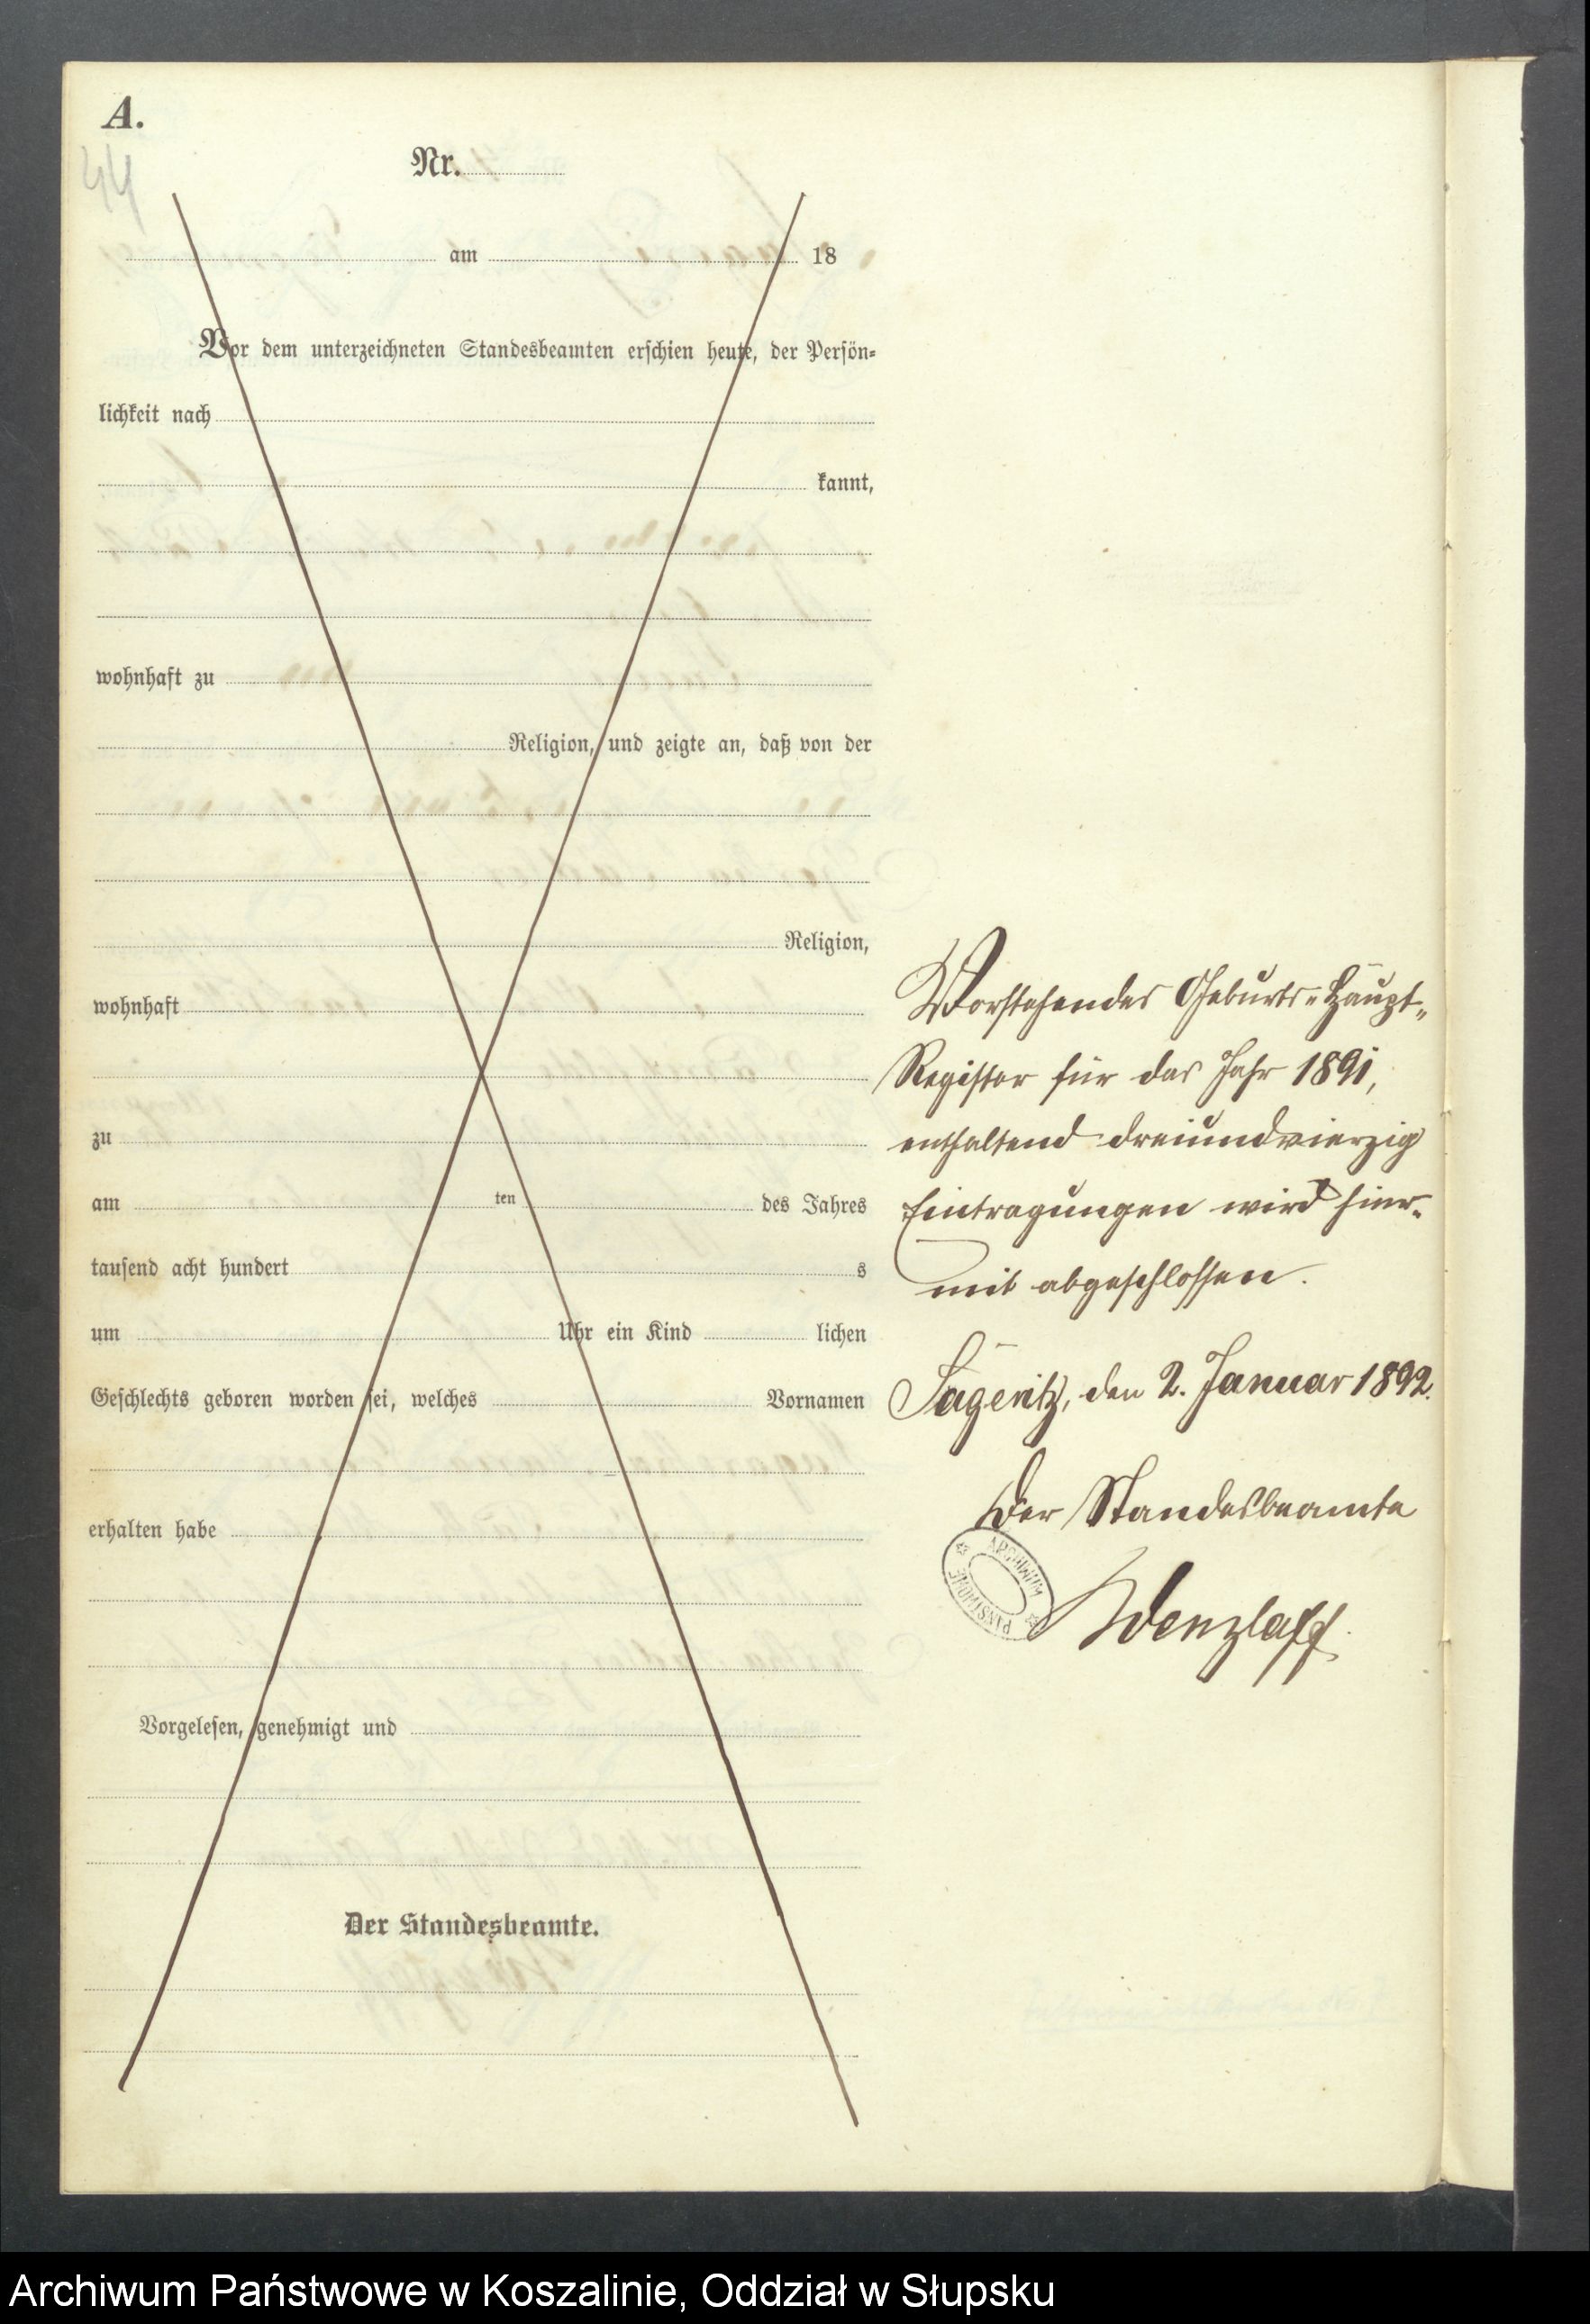 A.
44
Nr.
am 18
Vor dem unterzeichneten Standesbeamten erschien heute, der Persön-
lichkeit nach
kannt,
wohnhaft zu
Religion, und zeigte an, daß von der
Religion,
wohnhaft
zu
am ten des Jahres
tausend acht hundert s
um Uhr ein Kind lichen
Geschlechts geboren worden sei, welches Vornamen
erhalten habe
Vorgelesen, genehmigt und
Der Standesbeamte.
Vorstehendes Geburts-Haupt-
Register für das Jahr 1891,
enthaltend dreiundvierzig
Eintragungen wird hier-
mit abgeschlossen.
Sageritz, den 2. Januar 1892.
Der Standesbeamte
ARCHIWUM PAŃSTWOWE
Wenzlaff.
Archiwum Państwowe w Koszalinie, Oddział w Słupsku